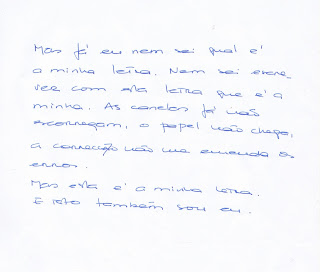 Mas já eu nem sei qual é
a minha letra. Nem sei escre-
ver com esta letra que é a
minha. As canetas já não
escorregam, o papel não chega,
a correcção não me emenda os
erros.
Mas esta é a minha letra.
E isto também sou eu.